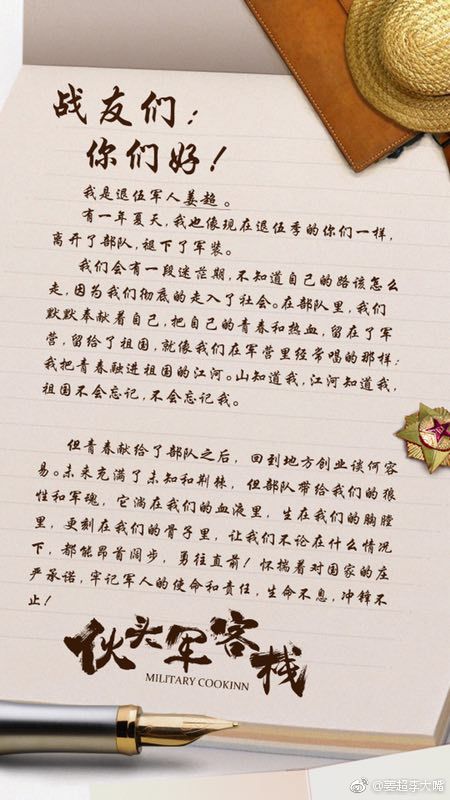 战友们：
你们好！
我是退伍军人姜超。
有一年夏天，我也像现在退伍季的你们一样，
离开了部队，褪下了军装。
我们会有一段迷茫期，不知道自己的路该怎么
走，因为我们彻底的走入了社会。在部队里，我们
默默奉献着自己，把自己的青春和热血，留在了军
营，留给了祖国，就像我们在军营里经常唱的那样：
我把青春融进祖国的江河。山知道我，江河知道我，
祖国不会忘记，不会忘记我。
但青春献给了部队之后，回到地方创业谈何容
易。未来充满了未知和荆棘，但部队带给我们的狼
性和军魂，它淌在我们的血液里，生在我们的胸膛
里，更刻在我们的骨子里，让我们不论在什么情况
下，都能昂首阔步，勇往直前！怀揣着对国家的庄
严承诺，牢记军人的使命和责任，生命不息，冲锋不
止！
伙头军客栈
MILITARY COOKINN
@姜超李大嘴